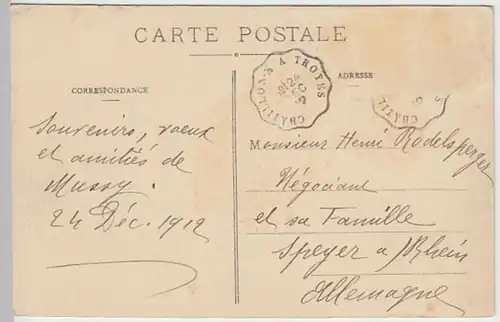 CARTE POSTALE
CORRESPONDANCE
ADRESSE
CHATILLON-S- A TROYES
24
DEC
CHATIL
Souvenirs, vœux
et amitiés de
Mussy.
24 Déc. 1912
Monsieur Henri Rodelsperger
Négociant
et sa Famille
Speyer a/Rhein
Allemagne